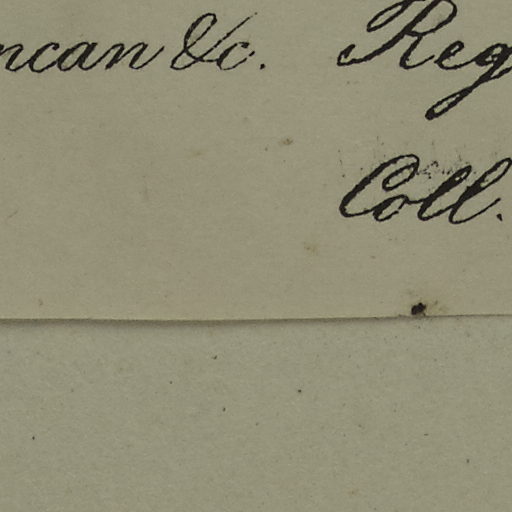 ncan &c. Reg
Coll.